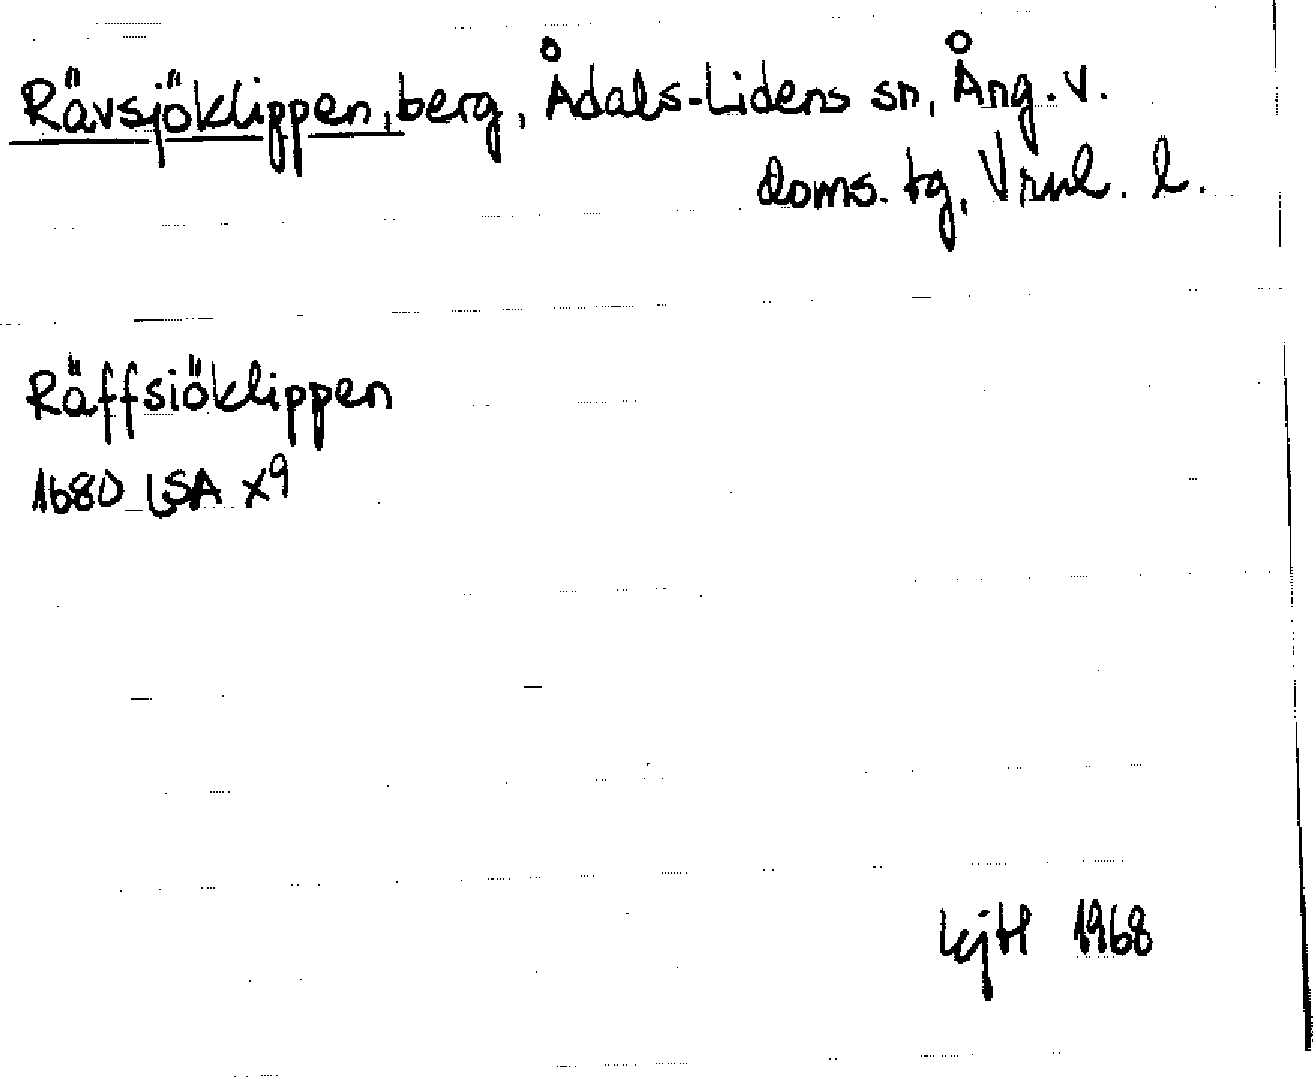 Rävsjöklippen, berg, Ådals-Lidens sn, Ång. v.
doms. tg, Vrnl. l.
Räffsiöklippen
1680 LSA X9
1968